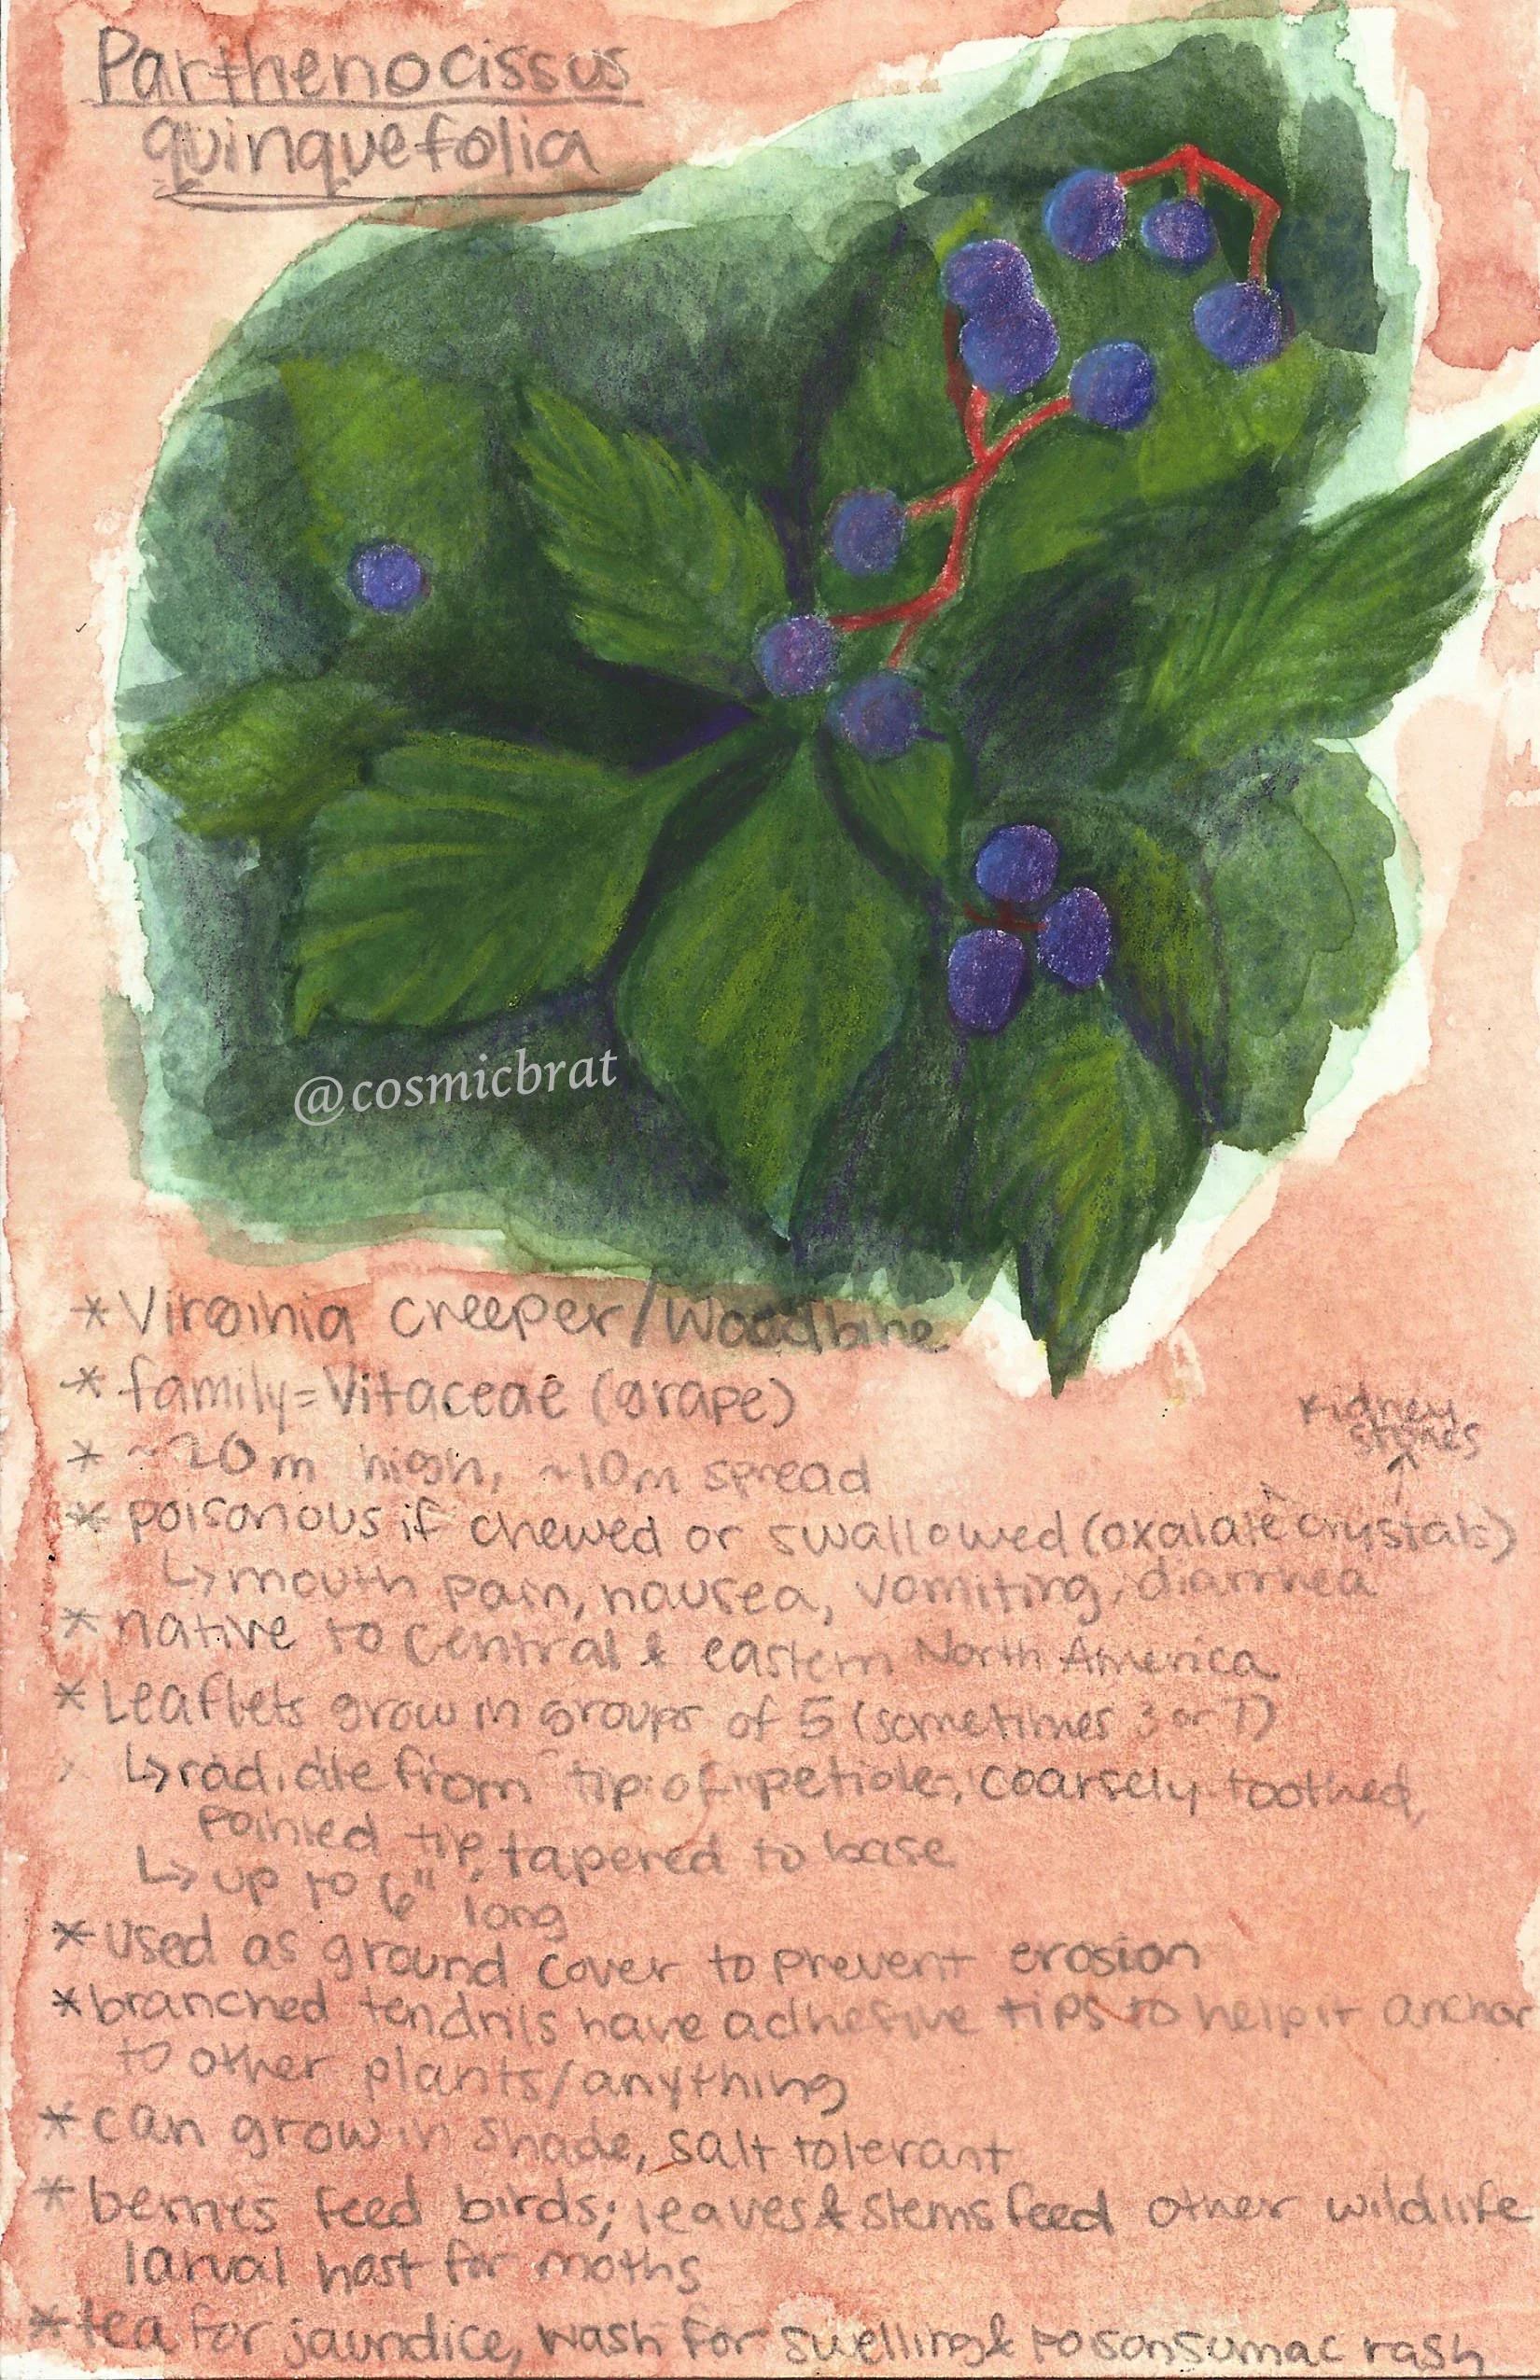 Parthenocissus
quinquefolia
@cosmicbrat
* Virginia creeper/Woodbine
* family=Vitaceae (grape)
* ~20m high, ~10m spread
kidney
stones
↑
* poisonous if chewed or swallowed (oxalate crystals)
↳ mouth pain, nausea, vomiting, diarrhea
* native to central & eastern North America
* Leaflets grow in groups of 5 (sometimes 3 or 7)
↳ radiate from tip of petiole, coarsely toothed,
pointed tip, tapered to base
↳ up to 6" long
* used as ground cover to prevent erosion
* branched tendrils have adhesive tips to help it anchor
to other plants/anything
* can grow in shade, salt tolerant
* berries feed birds; leaves & stems feed other wildlife
larval host for moths
* tea for jaundice, wash for swelling & poison sumac rash